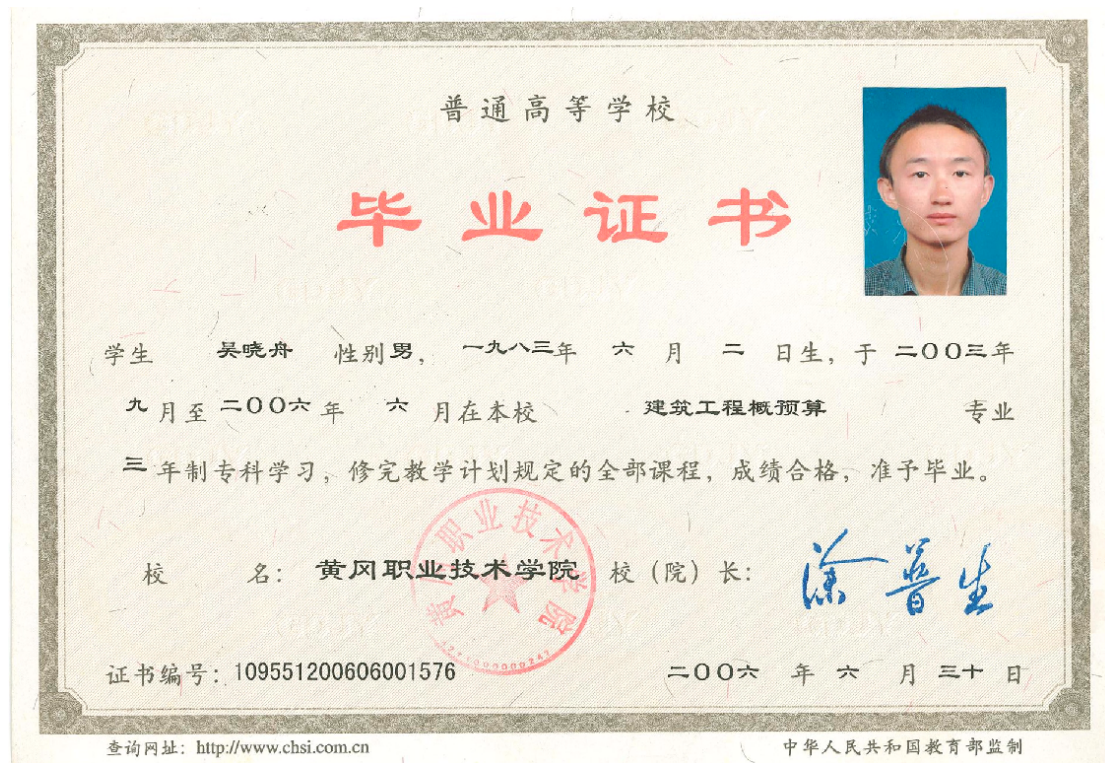 普通高等学校
毕业证书
学生 吴晓舟 性别 男，一九八三年 六 月 二 日生，于 二〇〇三年
九 月至 二〇〇六 年 六 月在本校 建筑工程概预算 专业
三 年制专科学习，修完教学计划规定的全部课程，成绩合格，准予毕业。
校 名：黄冈职业技术学院 校（院）长：涂普生
黄冈职业技术学院
证书编号：109551200606001576 二〇〇六 年 六 月 三十 日
查询网址：http://www.chsi.com.cn 中华人民共和国教育部监制